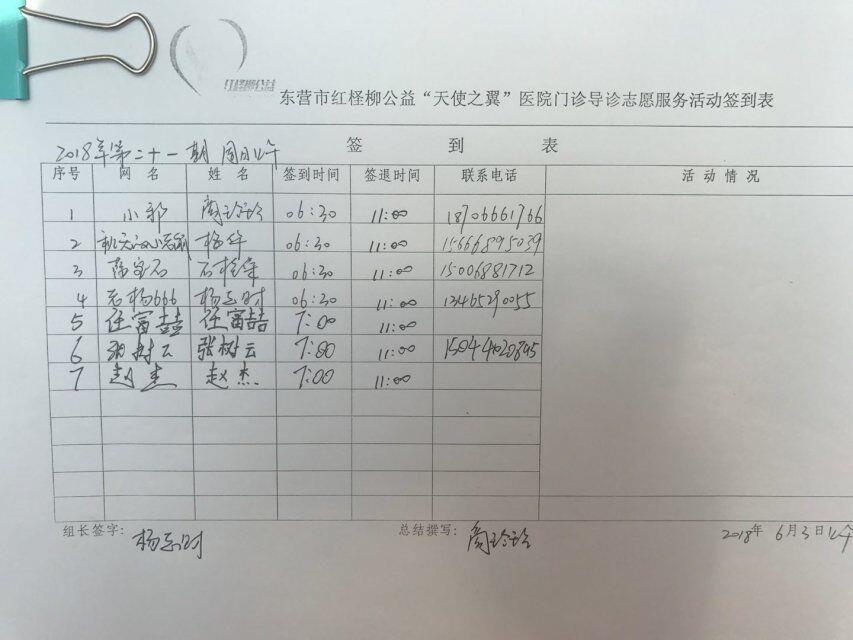 红柽柳公益
东营市红柽柳公益“天使之翼”医院门诊导诊志愿服务活动签到表
签 到 表
2018年第二十一期 周日上午
序号 网 名 姓 名 签到时间 签退时间 联系电话 活 动 情 况
1 小郭 周玲玲 06:30 11:00 18706661766
2 杨华 06:30 11:00 15666895039
3 石 06:30 11:00 15006881712
4 石杨666 杨志时 06:30 11:00 13465290055
5 任富喆 任富喆 7:00 11:00
6 张树云 张树云 7:00 11:00
7 赵杰 赵杰 7:00 11:00
组长签字: 杨志时 总结撰写: 周玲玲 2018年 6月3日上午